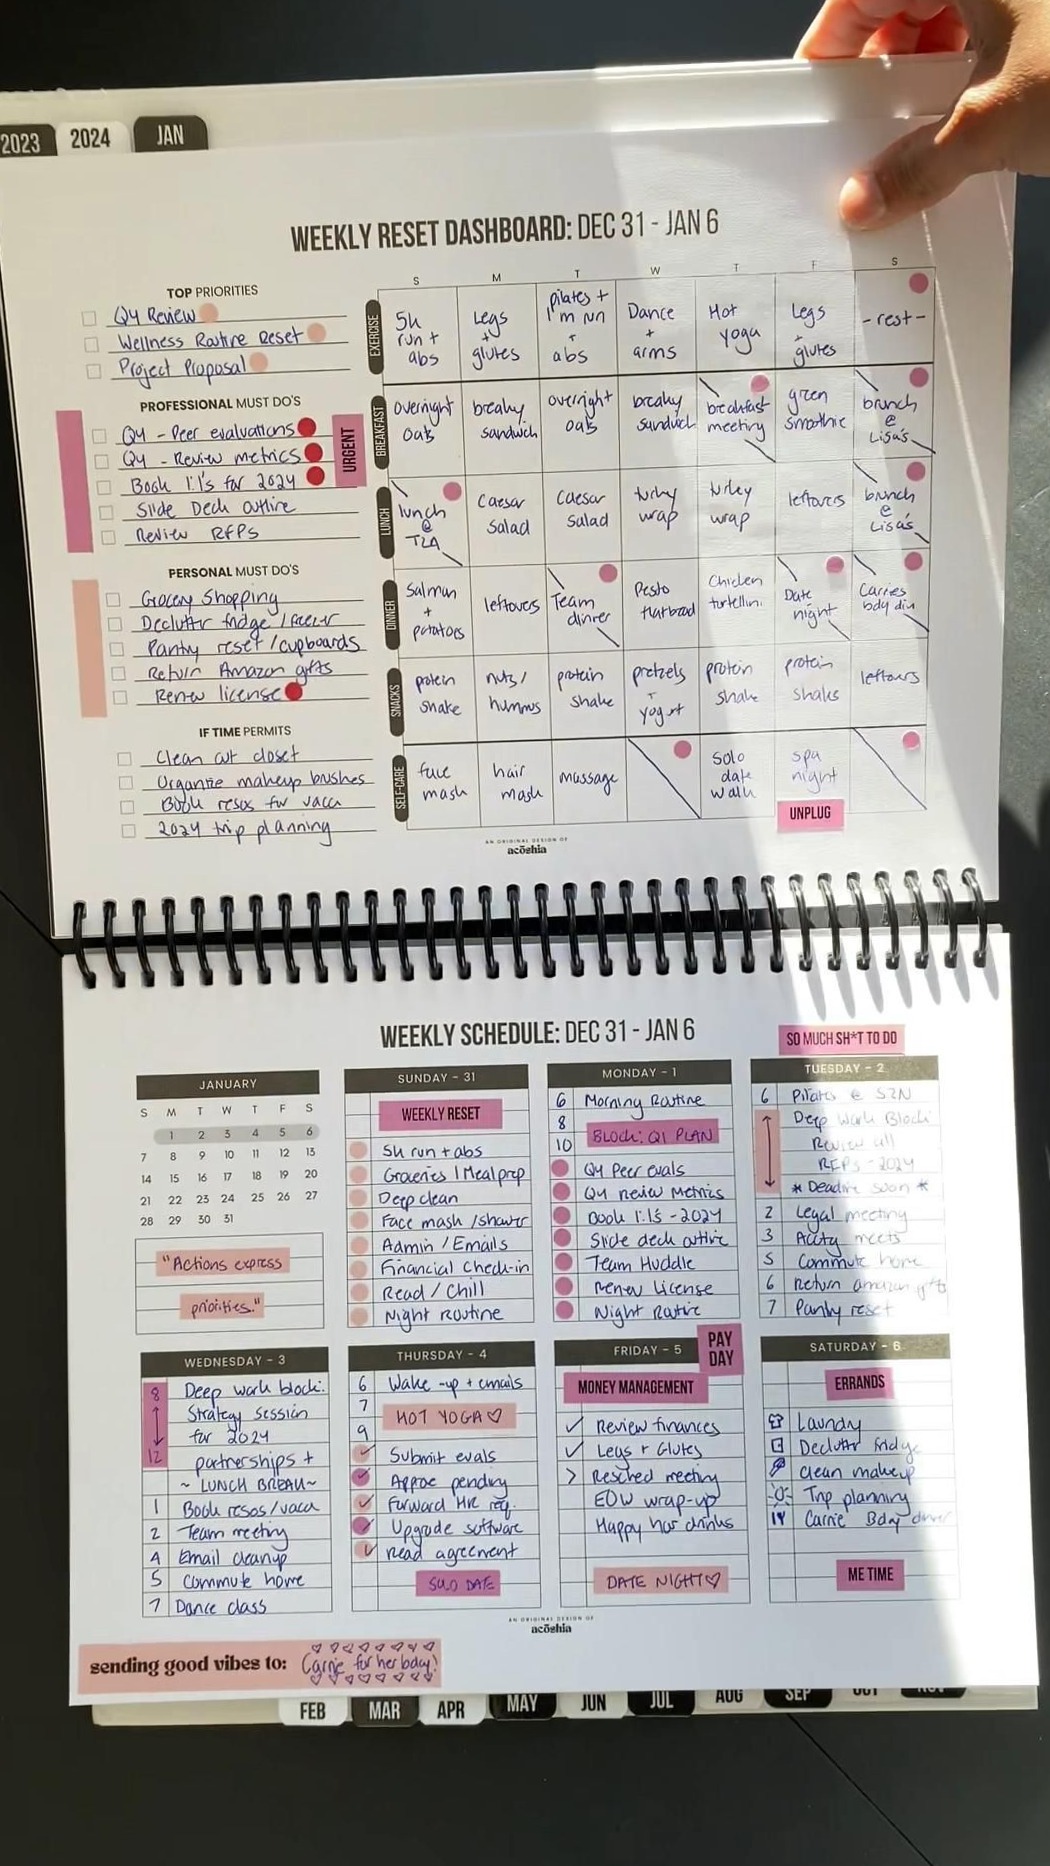 2023
2024
JAN
WEEKLY RESET DASHBOARD: DEC 31 - JAN 6
TOP PRIORITIES
Q4 Review
Wellness Routine Reset
Project Proposal
PROFESSIONAL MUST DO'S
Q4 - Peer evaluations
Q4 - Review metrics
Book 1:1's for 2024
Slide Deck outline
Review RFPS
URGENT
PERSONAL MUST DO'S
Grocery Shopping
Declutter fridge / freezer
Pantry reset / cupboards
Return Amazon gifts
Renew license
IF TIME PERMITS
Clean out closet
Organize makeup brushes
Book resos for vaca
2024 trip planning
S M T W T F S
EXERCISE
5k run + abs
Legs + glutes
pilates + 1m run + abs
Dance + arms
Hot yoga
Legs + glutes
- rest -
BREAKFAST
overnight oats
breaky sandwich
overnight oats
breaky sandwich
breakfast meeting
green smoothie
brunch @ Lisa's
LUNCH
lunch @
Caesar salad
Caesar salad
turkey wrap
turkey wrap
leftovers
brunch @ Lisa's
DINNER
Salmon + potatoes
leftovers
Team dinner
Pesto flatbread
Chicken tortellini
Date night
Carries bday din
SNACKS
protein shake
nuts / hummus
protein shake
pretzels + yogurt
protein shake
protein shake
leftovers
SELF-CARE
face mask
hair mask
massage
solo date walk
spa night
UNPLUG
AN ORIGINAL DESIGN OF
acōshia
WEEKLY SCHEDULE: DEC 31 - JAN 6
SO MUCH SH*T TO DO
JANUARY
S M T W T F S
1 2 3 4 5 6
7 8 9 10 11 12 13
14 15 16 17 18 19 20
21 22 23 24 25 26 27
28 29 30 31
"Actions express
priorities."
SUNDAY - 31
WEEKLY RESET
5k run + abs
Groceries | Meal prep
Deep clean
Face mask / shower
Admin / Emails
Financial Check-in
Read / Chill
Night Routine
MONDAY - 1
6 Morning Routine
8
10 BLOCK: Q1 PLAN
Q4 Peer evals
Q4 Review Metrics
Book 1:1's - 2024
Slide deck outline
Team Huddle
Renew License
Night Routine
TUESDAY - 2
6 Pilates @
Deep Work Block:
Review all
RFPs - 2024
* Deadline soon *
2 Legal meeting
3 meets
5 Commute home
6 Return amazon gifts
7 Pantry reset
WEDNESDAY - 3
8 Deep work block:
Strategy session
for 2024
12 partnerships +
~ LUNCH BREAK ~
1 Book resos / vaca
2 Team meeting
4 Email cleanup
5 Commute home
7 Dance class
THURSDAY - 4
6 Wake-up + emails
7
HOT YOGA ♡
9
Submit evals
Approve pending
Forward HR req.
Upgrade software
Read agreement
SOLO DATE
FRIDAY - 5
PAY DAY
MONEY MANAGEMENT
✓ Review finances
✓ Legs + Glutes
> Resched meeting
EOW wrap-up
Happy hour drinks
DATE NIGHT ♡
SATURDAY - 6
ERRANDS
Laundry
Declutter fridge
Clean makeup
Trip planning
Carrie Bday dinner
ME TIME
AN ORIGINAL DESIGN OF
acōshia
sending good vibes to: Carrie for her bday!
FEB MAR APR MAY JUN JUL AUG SEP OCT NOV